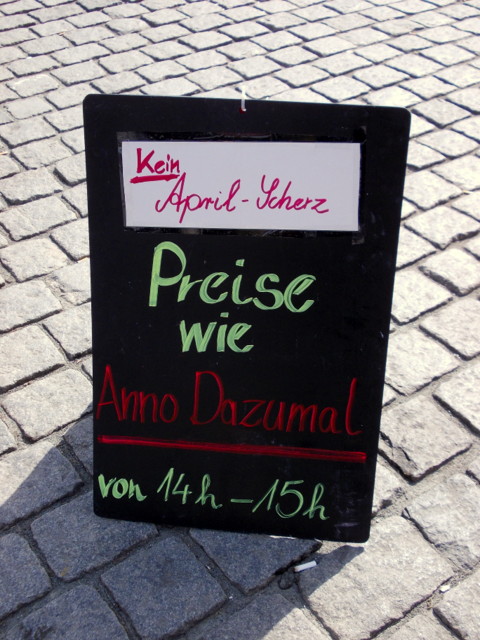 Kein
April-Scherz
Preise
wie
Anno Dazumal
von 14h - 15h